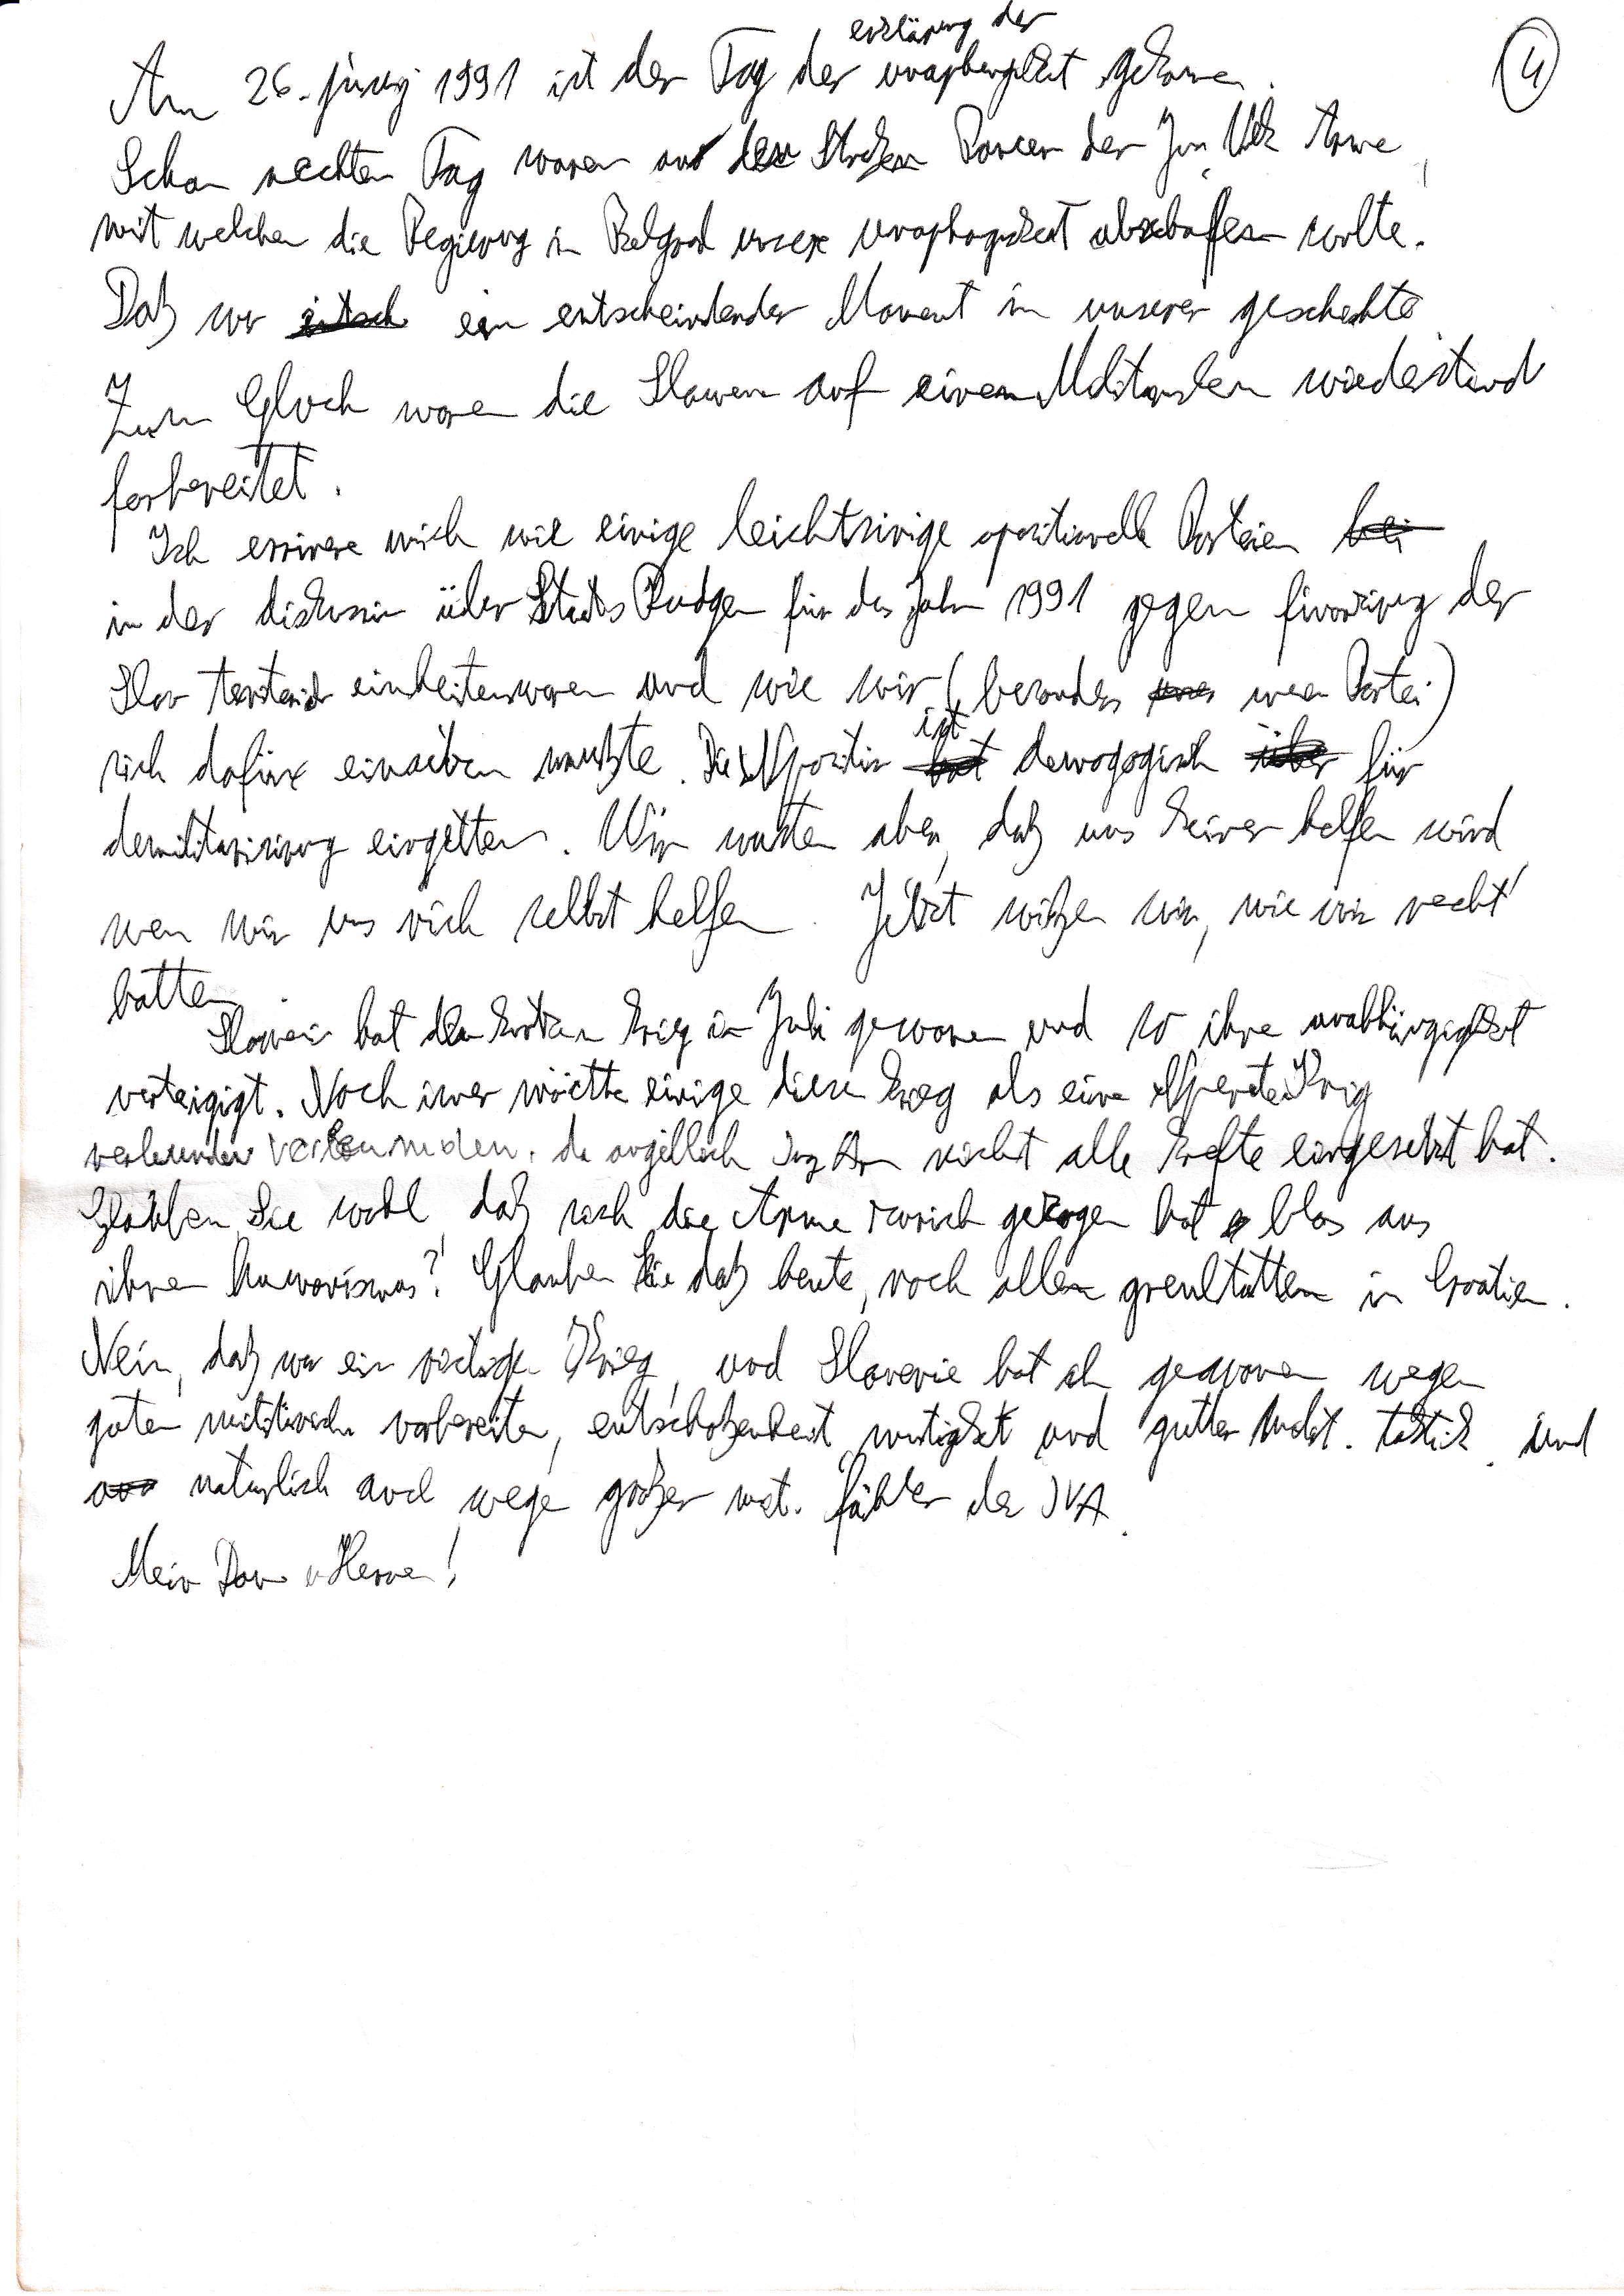 4
erklärung der
Am 26. juny 1991 ist der Tag der unaphengikeit gekomen.
Schon nechten Tag waren auf den Straßen Pancer der Jug. Volk Arme,
mit welchen die Regierung in Belgrad unsere unaphangikeit abschafen wolte.
Daß war ein entscheindender Moment in unserer geschichte
Zum Gluck waren die Slowenen auf einem Militarishen wiederstand
forbereitet.
Ich erinere mich wie einige leichtsinige opositionelle Parteien
in der diskusion über Staats Budgen für das Jahr 1991 gegen finanzirung der
Slov einheiten waren und wie wir (besonders Partei)
sich dafür mußte. Die Oposition ist demagogish für
demilitarisirung eingetten. Wir wusten aber, daß uns keiner helfen wird
wen wir uns nich selbst helfen. Jetzt wißen wir, wie wir recht
hatten.
Slowenien hat den Krieg in Juli gewonen und so ihre unabhängigkeit
verteigigt. Noch imer möchte einige diesen Krieg als eine Operete Krig
da angeblich Jug Arm nicht alle krefte eingesetzt hat.
Glauben Sie wohl daß sich die Arme zurück gezogen hat blos aus
ihren humanismus? Glauben Sie daß heute, noch allen greultatten in Croatien.
Nein, daß war ein richtiger Krieg und Slovenie hat ihn gewonen wegen
guten militärischen vorbereiten, entschloßenheit mutigkeit und gutter milit. taktik. und
naturlich auch wegen großer mit. fähler der JVA.
Mein Dam u Herren!